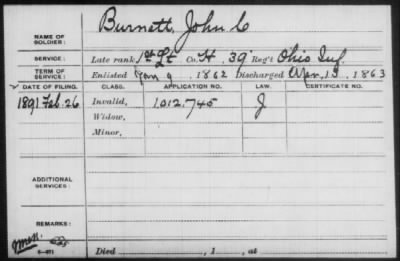 Burnett, John C
NAME OF SOLDIER:
SERVICE: Late rank 1st Lt Co. H. 39" Reg't Ohio Inf.
TERM OF SERVICE: Enlisted Jan 9, 1862 Discharged Apr. 13, 1863
DATE OF FILING. CLASS. APPLICATION NO. LAW. CERTIFICATE NO.
1891 Feb. 26 Invalid, 1,012,745 J
Widow,
Minor,
ADDITIONAL SERVICES:
REMARKS:
Died , 1 , at